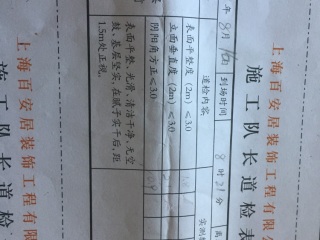 上海百安居装饰工程有限
施工队长道检表
年 8月 到场时间 8时21分 离
送检内容 实测
表面平整度(2m)≤3.0
立面垂直度(2m)≤3.0
阴阳角方正≤3.0
表面平整、光滑、清洁干净、无空
鼓,基层坚实,在腻子实干后,距
1.5m处正视,
上海百安居装饰工程有限
施工队长道检